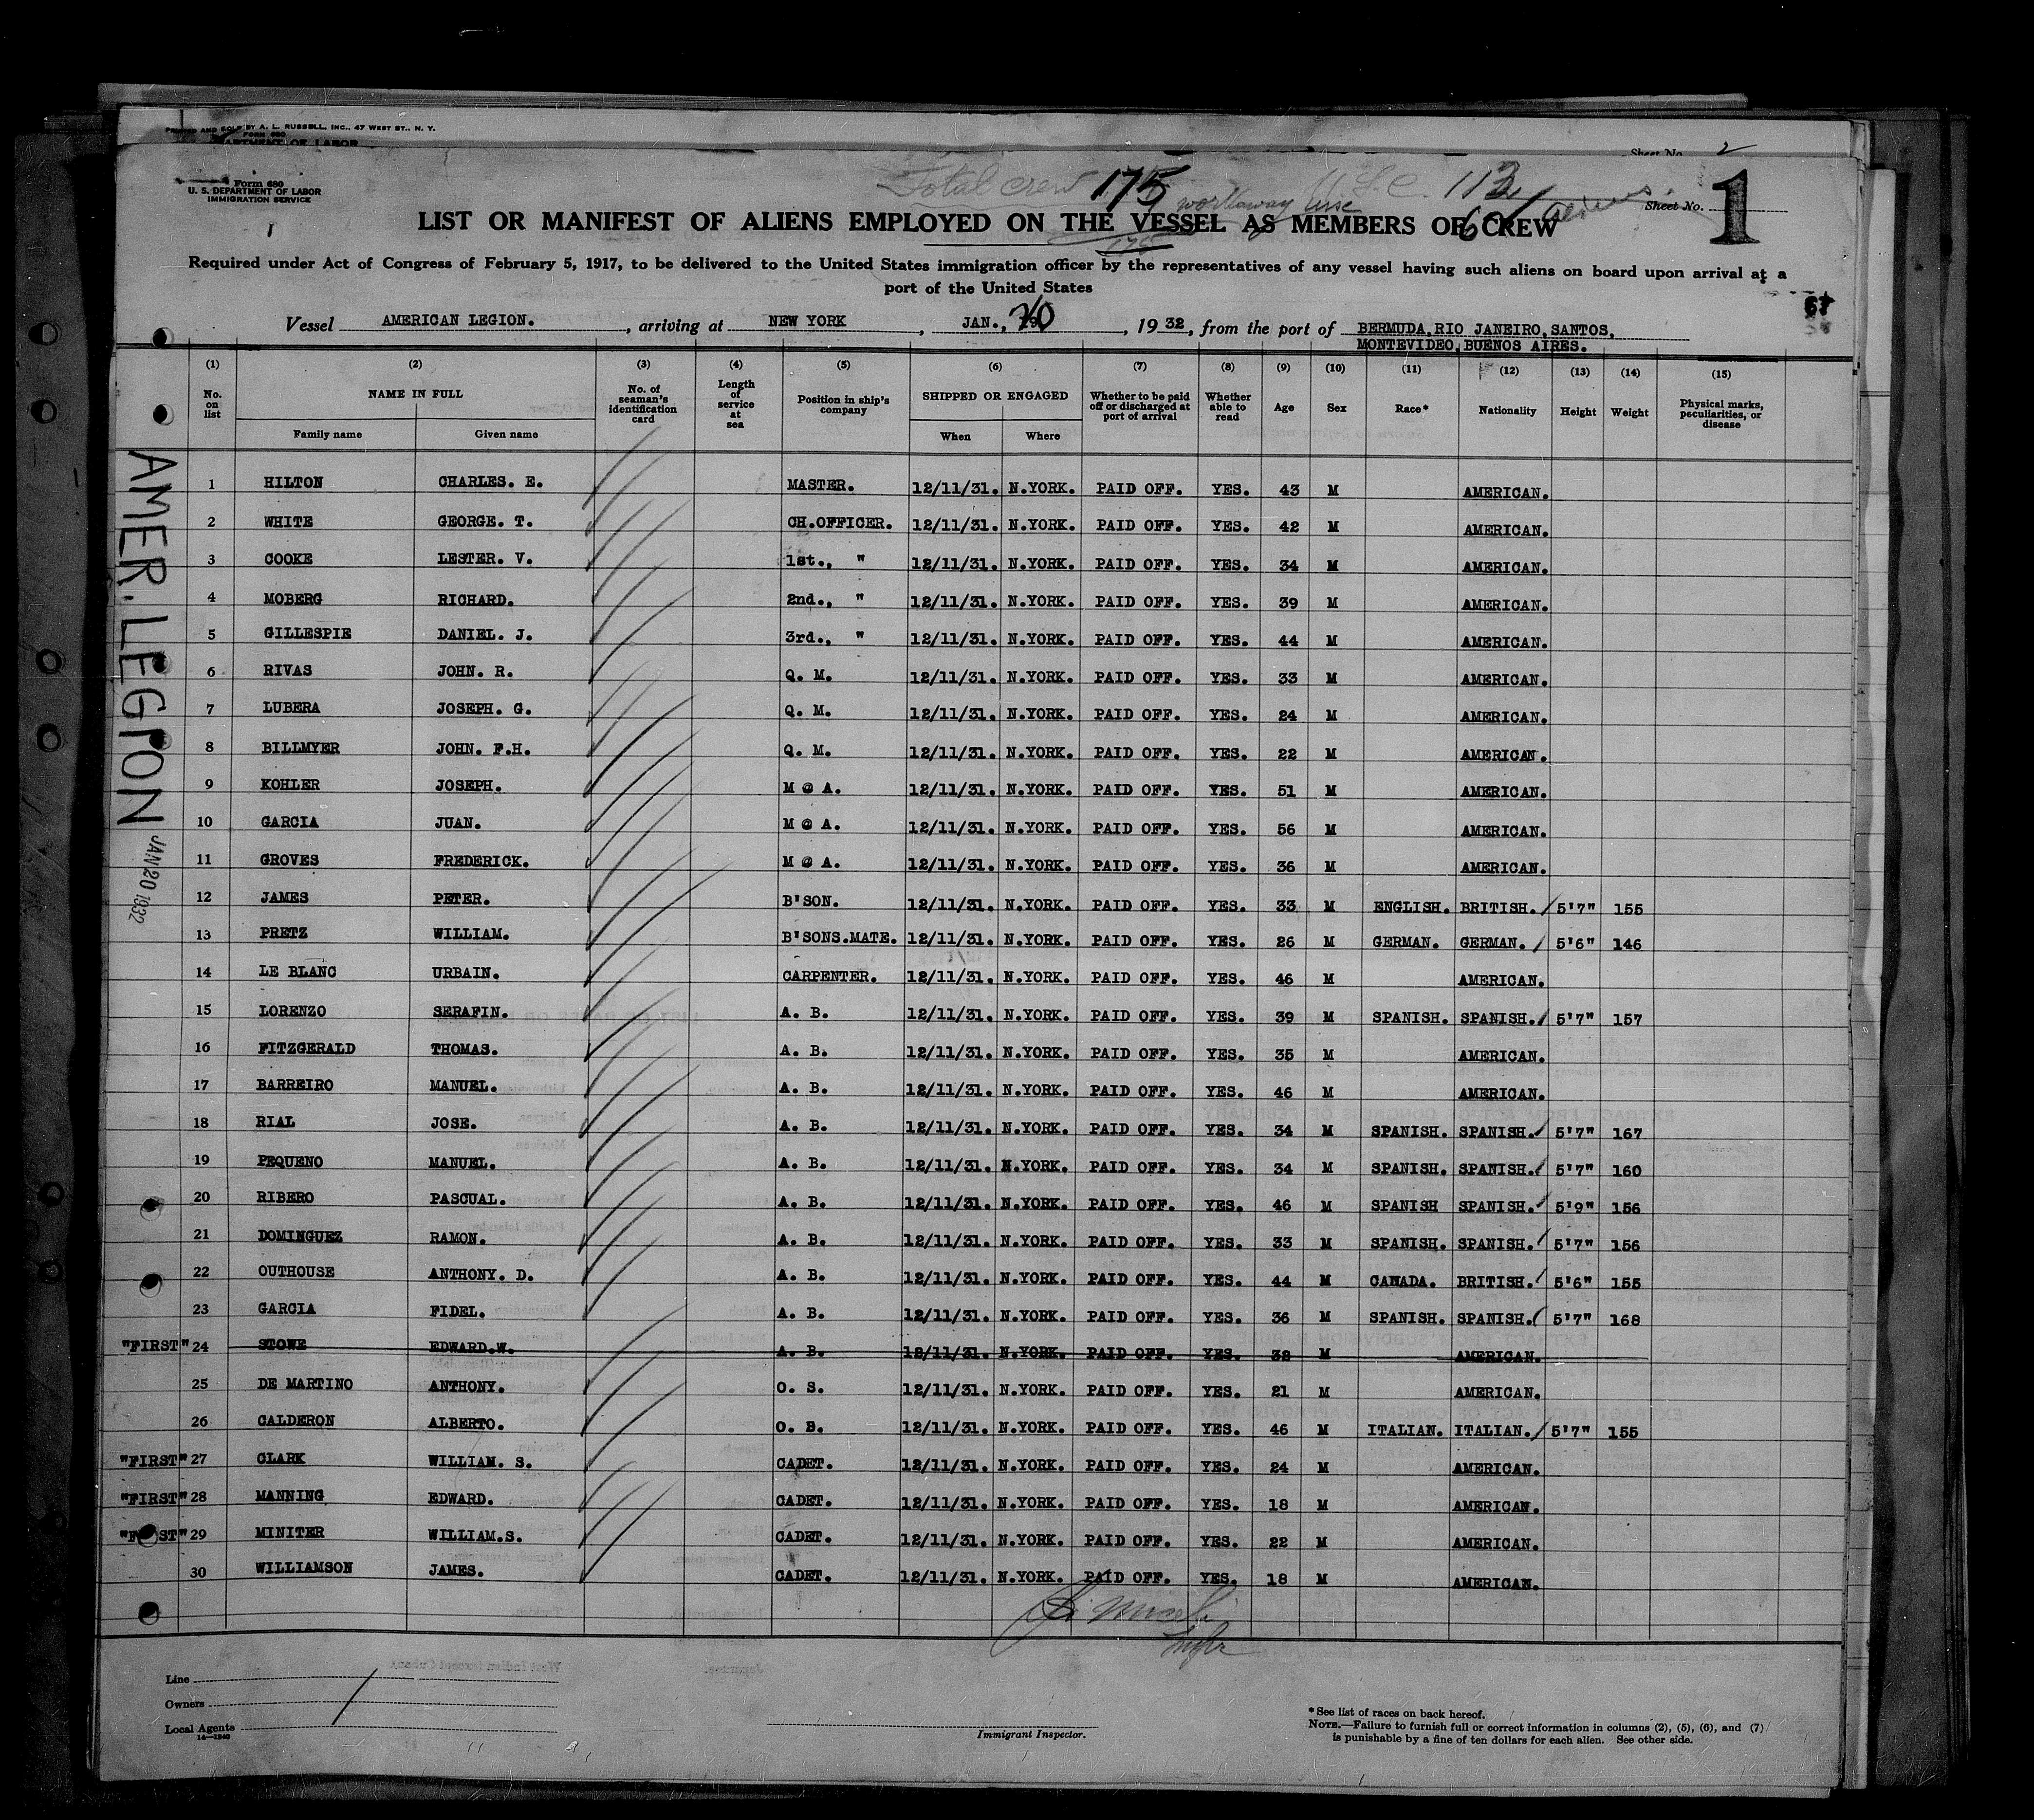 PRINTED AND SOLD BY A. L. RUSSELL, INC., 47 WEST ST., N. Y.
FORM 680
DEPARTMENT OF LABOR
Sheet No. 2
Form 680
U. S. DEPARTMENT OF LABOR
IMMIGRATION SERVICE
Total crew 175 U.S.C. 113
workaway
aliens
Sheet No. 1
LIST OR MANIFEST OF ALIENS EMPLOYED ON THE VESSEL AS MEMBERS OF CREW
Required under Act of Congress of February 5, 1917, to be delivered to the United States immigration officer by the representatives of any vessel having such aliens on board upon arrival at a
port of the United States
Vessel AMERICAN LEGION., arriving at NEW YORK, JAN., 20, 1932, from the port of BERMUDA, RIO JANEIRO, SANTOS,
MONTEVIDEO, BUENOS AIRES.
(1) (2) (3) (4) (5) (6) (7) (8) (9) (10) (11) (12) (13) (14) (15)
No. on list NAME IN FULL No. of seaman's identification card Length of service at sea Position in ship's company SHIPPED OR ENGAGED Whether to be paid off or discharged at port of arrival Whether able to read Age Sex Race* Nationality Height Weight Physical marks, peculiarities, or disease
Family name Given name When Where
AMER. LEGION
JAN 20 1932
1 HILTON CHARLES. E. MASTER. 12/11/31. N.YORK. PAID OFF. YES. 43 M AMERICAN.
2 WHITE GEORGE. T. CH.OFFICER. 12/11/31. N.YORK. PAID OFF. YES. 42 M AMERICAN.
3 COOKE LESTER. V. 1st., " 12/11/31. N.YORK. PAID OFF. YES. 34 M AMERICAN.
4 MOBERG RICHARD. 2nd., " 12/11/31. N.YORK. PAID OFF. YES. 39 M AMERICAN.
5 GILLESPIE DANIEL. J. 3rd., " 12/11/31. N.YORK. PAID OFF. YES. 44 M AMERICAN.
6 RIVAS JOHN. R. Q. M. 12/11/31. N.YORK. PAID OFF. YES. 33 M AMERICAN.
7 LUBERA JOSEPH. G. Q. M. 12/11/31. N.YORK. PAID OFF. YES. 24 M AMERICAN.
8 BILLMYER JOHN. F.H. Q. M. 12/11/31. N.YORK. PAID OFF. YES. 22 M AMERICAN.
9 KOHLER JOSEPH. M @ A. 12/11/31. N.YORK. PAID OFF. YES. 51 M AMERICAN.
10 GARCIA JUAN. M @ A. 12/11/31. N.YORK. PAID OFF. YES. 56 M AMERICAN.
11 GROVES FREDERICK. M @ A. 12/11/31. N.YORK. PAID OFF. YES. 36 M AMERICAN.
12 JAMES PETER. B'SON. 12/11/31. N.YORK. PAID OFF. YES. 33 M ENGLISH. BRITISH. 5'7" 155
13 PRETZ WILLIAM. B'SONS.MATE. 12/11/31. N.YORK. PAID OFF. YES. 26 M GERMAN. GERMAN. 5'6" 146
14 LE BLANC URBAIN. CARPENTER. 12/11/31. N.YORK. PAID OFF. YES. 46 M AMERICAN.
15 LORENZO SERAFIN. A. B. 12/11/31. N.YORK. PAID OFF. YES. 39 M SPANISH. SPANISH. 5'7" 157
16 FITZGERALD THOMAS. A. B. 12/11/31. N.YORK. PAID OFF. YES. 35 M AMERICAN.
17 BARREIRO MANUEL. A. B. 12/11/31. N.YORK. PAID OFF. YES. 46 M AMERICAN.
18 RIAL JOSE. A. B. 12/11/31. N.YORK. PAID OFF. YES. 34 M SPANISH. SPANISH. 5'7" 167
19 PEQUENO MANUEL. A. B. 12/11/31. N.YORK. PAID OFF. YES. 34 M SPANISH. SPANISH. 5'7" 160
20 RIBERO PASCUAL. A. B. 12/11/31. N.YORK. PAID OFF. YES. 46 M SPANISH SPANISH. 5'9" 156
21 DOMINGUEZ RAMON. A. B. 12/11/31. N.YORK. PAID OFF. YES. 33 M SPANISH. SPANISH. 5'7" 156
22 OUTHOUSE ANTHONY. D. A. B. 12/11/31. N.YORK. PAID OFF. YES. 44 M CANADA. BRITISH. 5'6" 155
23 GARCIA FIDEL. A. B. 12/11/31. N.YORK. PAID OFF. YES. 36 M SPANISH. SPANISH. 5'7" 168
"FIRST" 24 STOWE EDWARD.W. A. B. 12/11/31. N.YORK. PAID OFF. YES. 38 M AMERICAN.
25 DE MARTINO ANTHONY. O. S. 12/11/31. N.YORK. PAID OFF. YES. 21 M AMERICAN.
26 CALDERON ALBERTO. O. S. 12/11/31. N.YORK. PAID OFF. YES. 46 M ITALIAN. ITALIAN. 5'7" 155
"FIRST" 27 CLARK WILLIAM. S. CADET. 12/11/31. N.YORK. PAID OFF. YES. 24 M AMERICAN.
"FIRST" 28 MANNING EDWARD. CADET. 12/11/31. N.YORK. PAID OFF. YES. 18 M AMERICAN.
"FIRST" 29 MINITER WILLIAM.S. CADET. 12/11/31. N.YORK. PAID OFF. YES. 22 M AMERICAN.
30 WILLIAMSON JAMES. CADET. 12/11/31. N.YORK. PAID OFF. YES. 18 M AMERICAN.
Line
Owners
Local Agents
14—1240
Immigrant Inspector.
* See list of races on back hereof.
NOTE.—Failure to furnish full or correct information in columns (2), (5), (6), and (7)
is punishable by a fine of ten dollars for each alien. See other side.